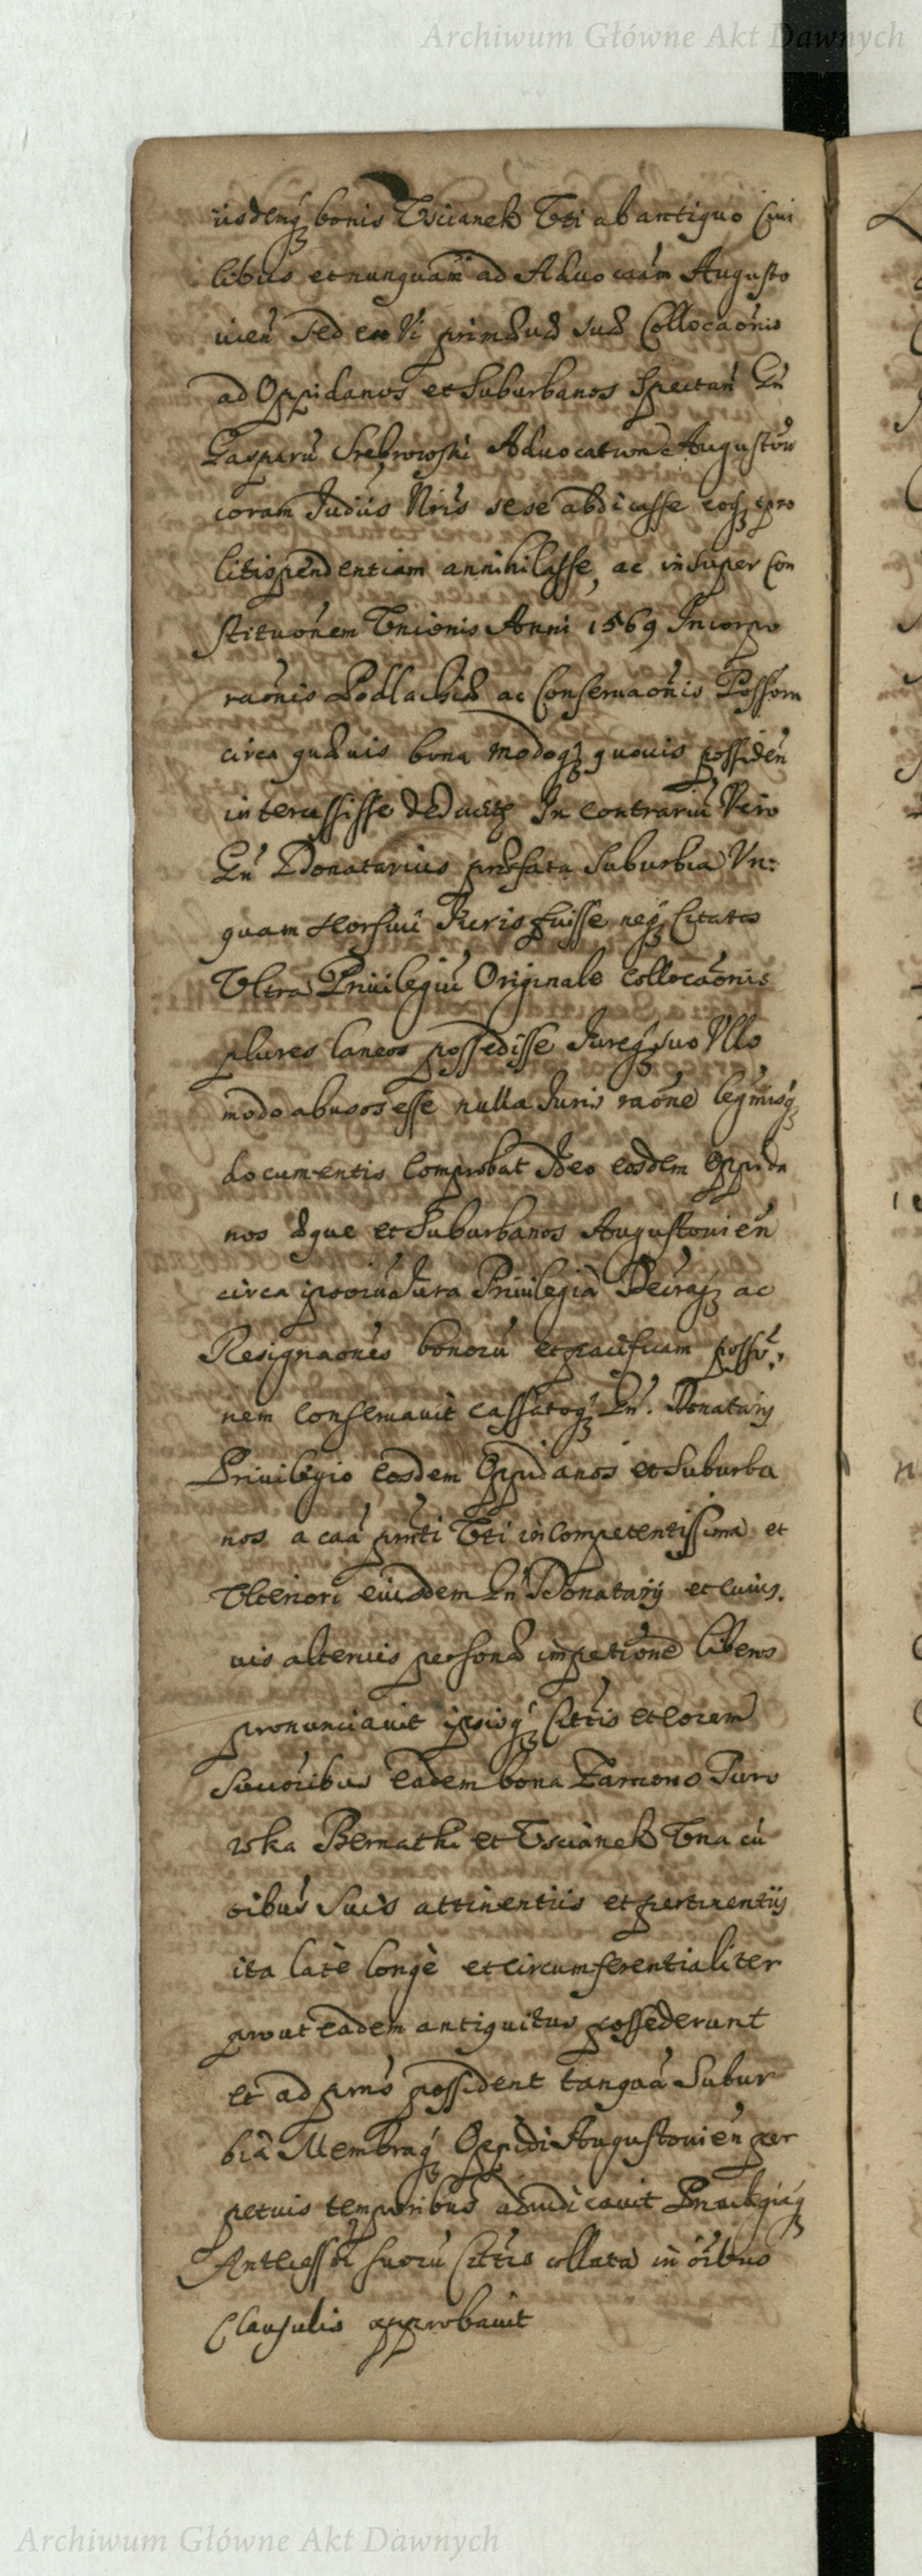 Archiwum Główne Akt Dawnych
iisdemq3 bonis Uscianek Tti ab antiquo Civi
libus et nunquam ad Advocaām Augusto
vien̄ Sed ex Vi primævæ suæ Collocaōnis
ad Oppidanos et Suburbanos Spectan̄ Gn̄
Gasparū Srebrowski Advocatum Augustov̄
coram Judiis Nris sese abdicasse eosq3 pro
litispendentiam annihilasse, ac insuper Con
stituōnem Unionis Anni 1569 Incorpo
raōnis Podlachiæ ac Conservaōnis Possōm
circa quævis bona modoq3 quovis possiden̄
intercessisse deduxit In contrariū Vero
Gn̄ Donatarius præfata Suburbia Un:
quam Juris fuisse neq3 Citatos
Ultra Privilegiū Originale Collocaōnis
plures laneos possedisse Jureq3 suo Ullo
modo abusos esse nulla Juris raōne legmisq3
documentis Comprobat Ideo eosdem Oppida
nos æque et Suburbanos Augustovien̄
circa ipsorū Jura Privilegia Decraq3 ac
Resignaōnes bonorū et pacificam possō,
nem conservavit cassatoq3 Gn̄. Donatarij
Privilegio Eosdem Oppidanos et Suburba
nos a caā pnti Tti incompetentissima et
Ulteriori eiusdem Gn̄ Donatarij et cuius.
vis alterius personæ impetiōne liberos
pronunciavit ipsisq3 Cittis et eorem
Succōribus Eadem bona Zarnowo Turo
wka Bernatki et Uscianek Una cū
oībus Suis attinentiis et pertinentijs
ita latè longè et circumferentialiter
prout eadem antiquitus possederunt
et ad pn̄s possident tanqaā Subur
bia Membraq3 Oppidi Augustovien̄ per
petuis temporibus adiudicavit Privilegiaq3
Antecessor̄ suorū Cittis collata in oībus
Clausulis approbavit
Archiwum Główne Akt Dawnych